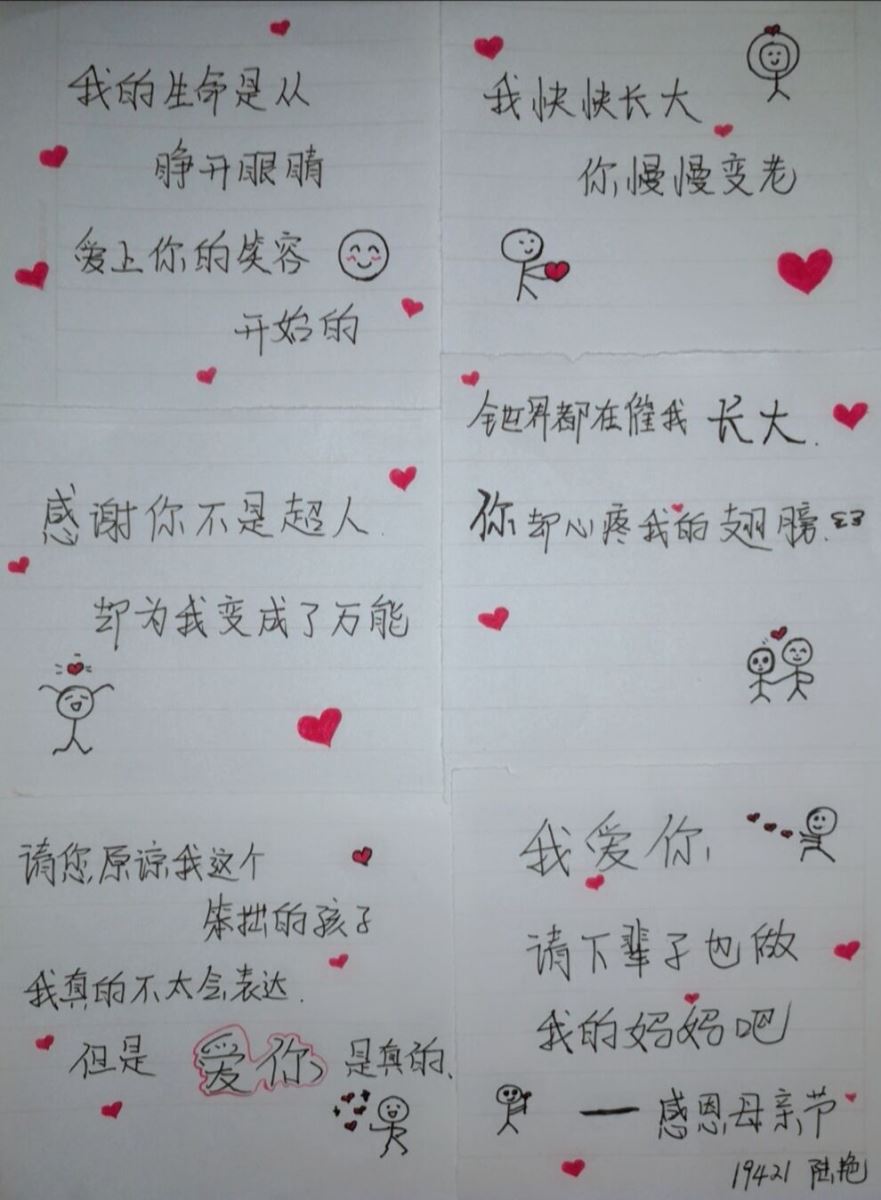 我的生命是从
睁开眼睛
爱上你的笑容
开始的
我快快长大
你慢慢变老
感谢你不是超人.
却为我变成了万能
全世界都在催我 长大.
你却心疼我的翅膀.
请您原谅我这个
笨拙的孩子
我真的不太会表达.
但是 爱你 是真的、
我爱你,
请下辈子也做
我的妈妈吧
——感恩母亲节
19421 陆艳